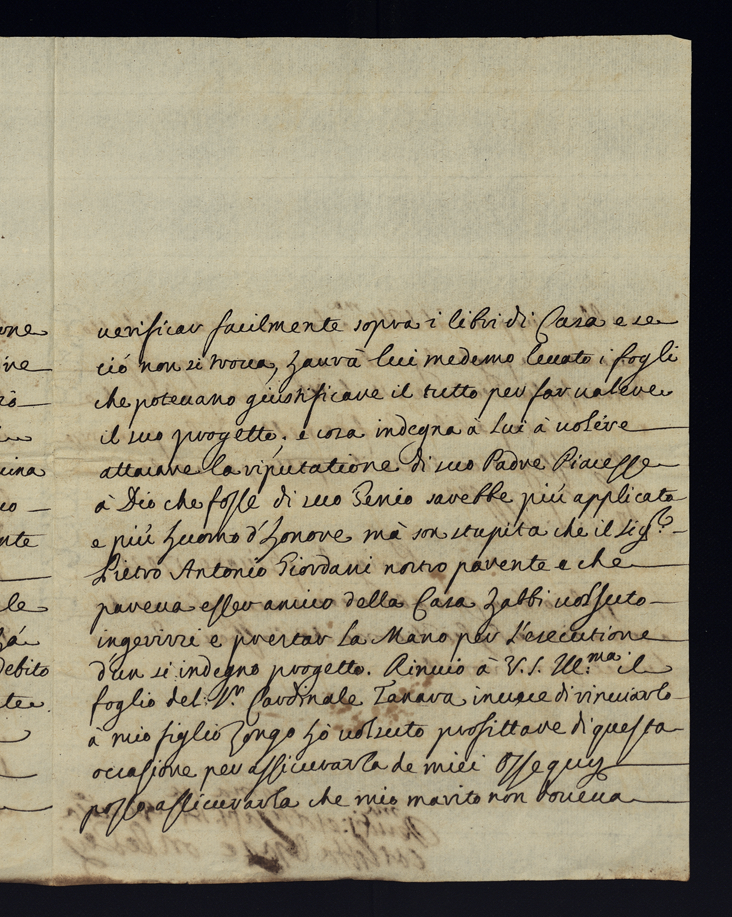 verificar facilmente sopra i libri di Casa e se
ció non si trova, haurà lui medemo levato i fogli
che potevano giustificare il tutto per far valere
il suo progetto. è cosa indegna à lui à volére
attacare la riputatione di suo Padre Piacesse
à Dio che fosse di suo Genio sarebbe piú applicato
e piú huomo d'honore mà son stupita che il Sig.re
Pietro Antonio Giordani nostro parente e che
pareva esser amico della Casa habbi volsuto
ingerirsi e prestar la Mano per l'esecutione
d'un si indegno progetto. Rinvio à V.S. Ill.ma il
foglio del Sr. Cardinale Tanara invece di rinviarlo
à mio figlio hó volsuto profittare di questa
occasione per assicurarla de miei Ossequy
posso assicurarla che mio marito non doveva
one
ne
cina
nte
le
há
debito
te